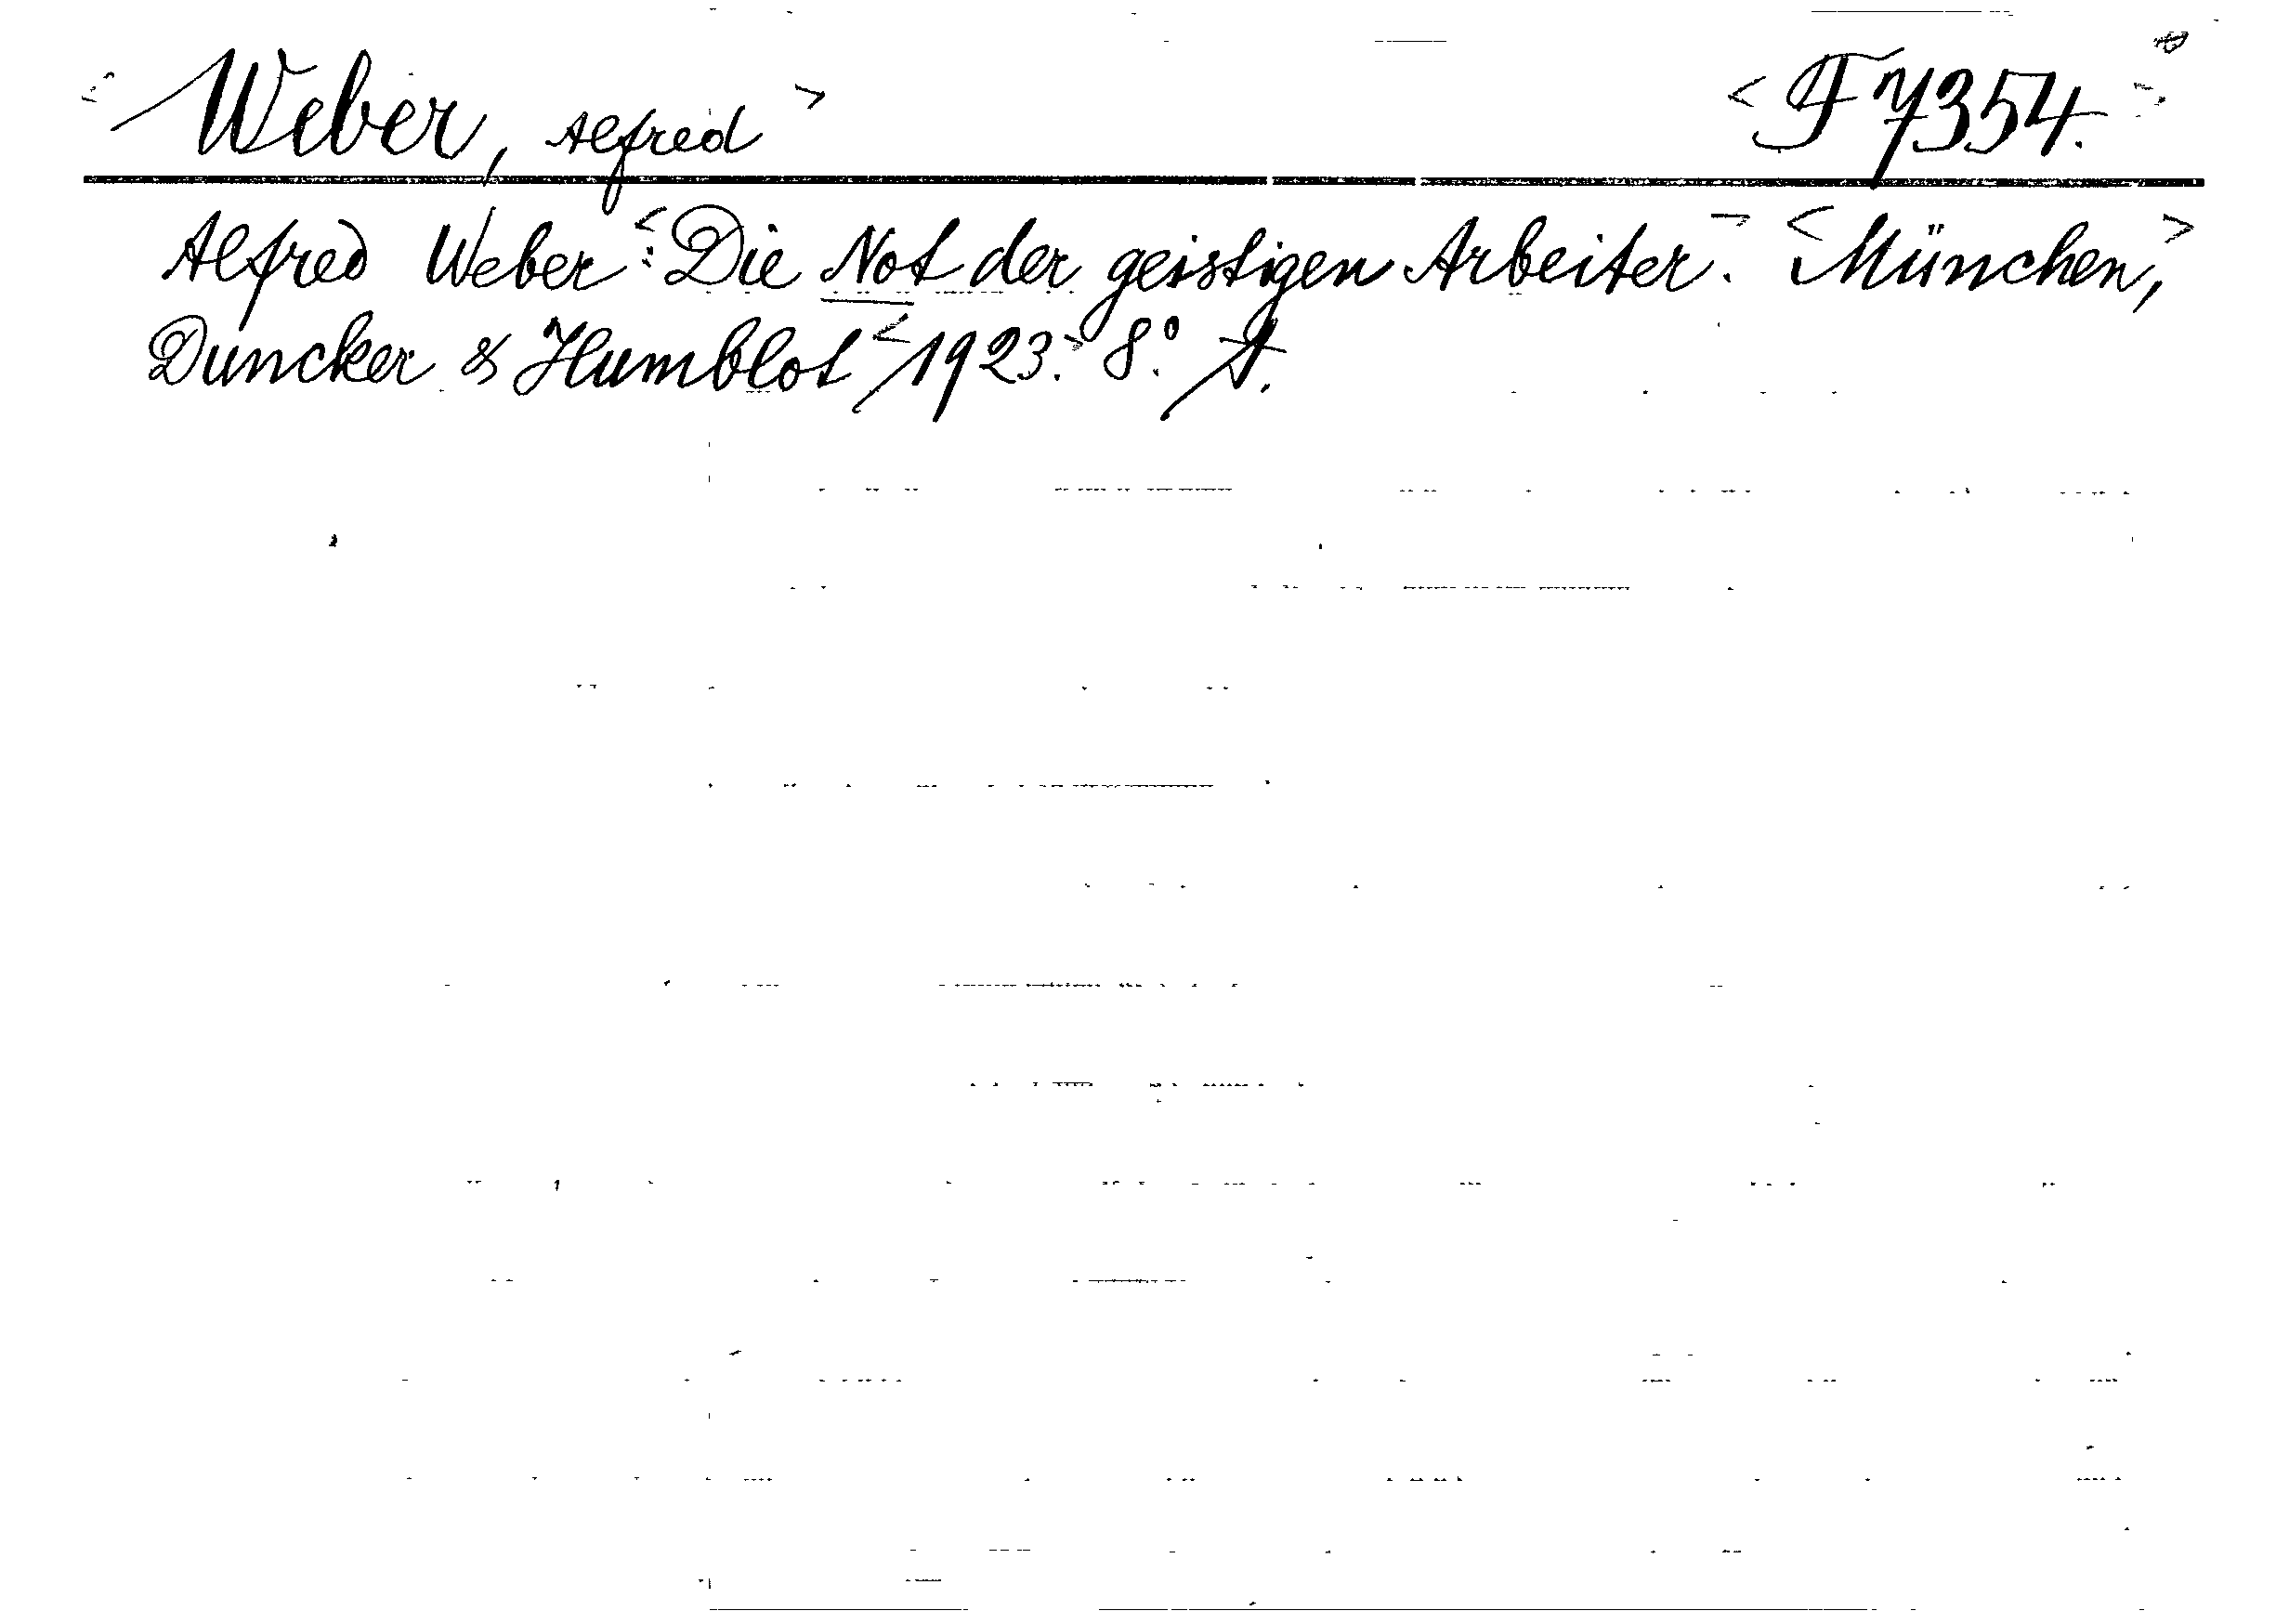 <Weber, Alfred> <F 7354.>
Alfred Weber: <Die Not der geistigen Arbeiter.> <München,>
Duncker & Humblot <1923.> 8°.